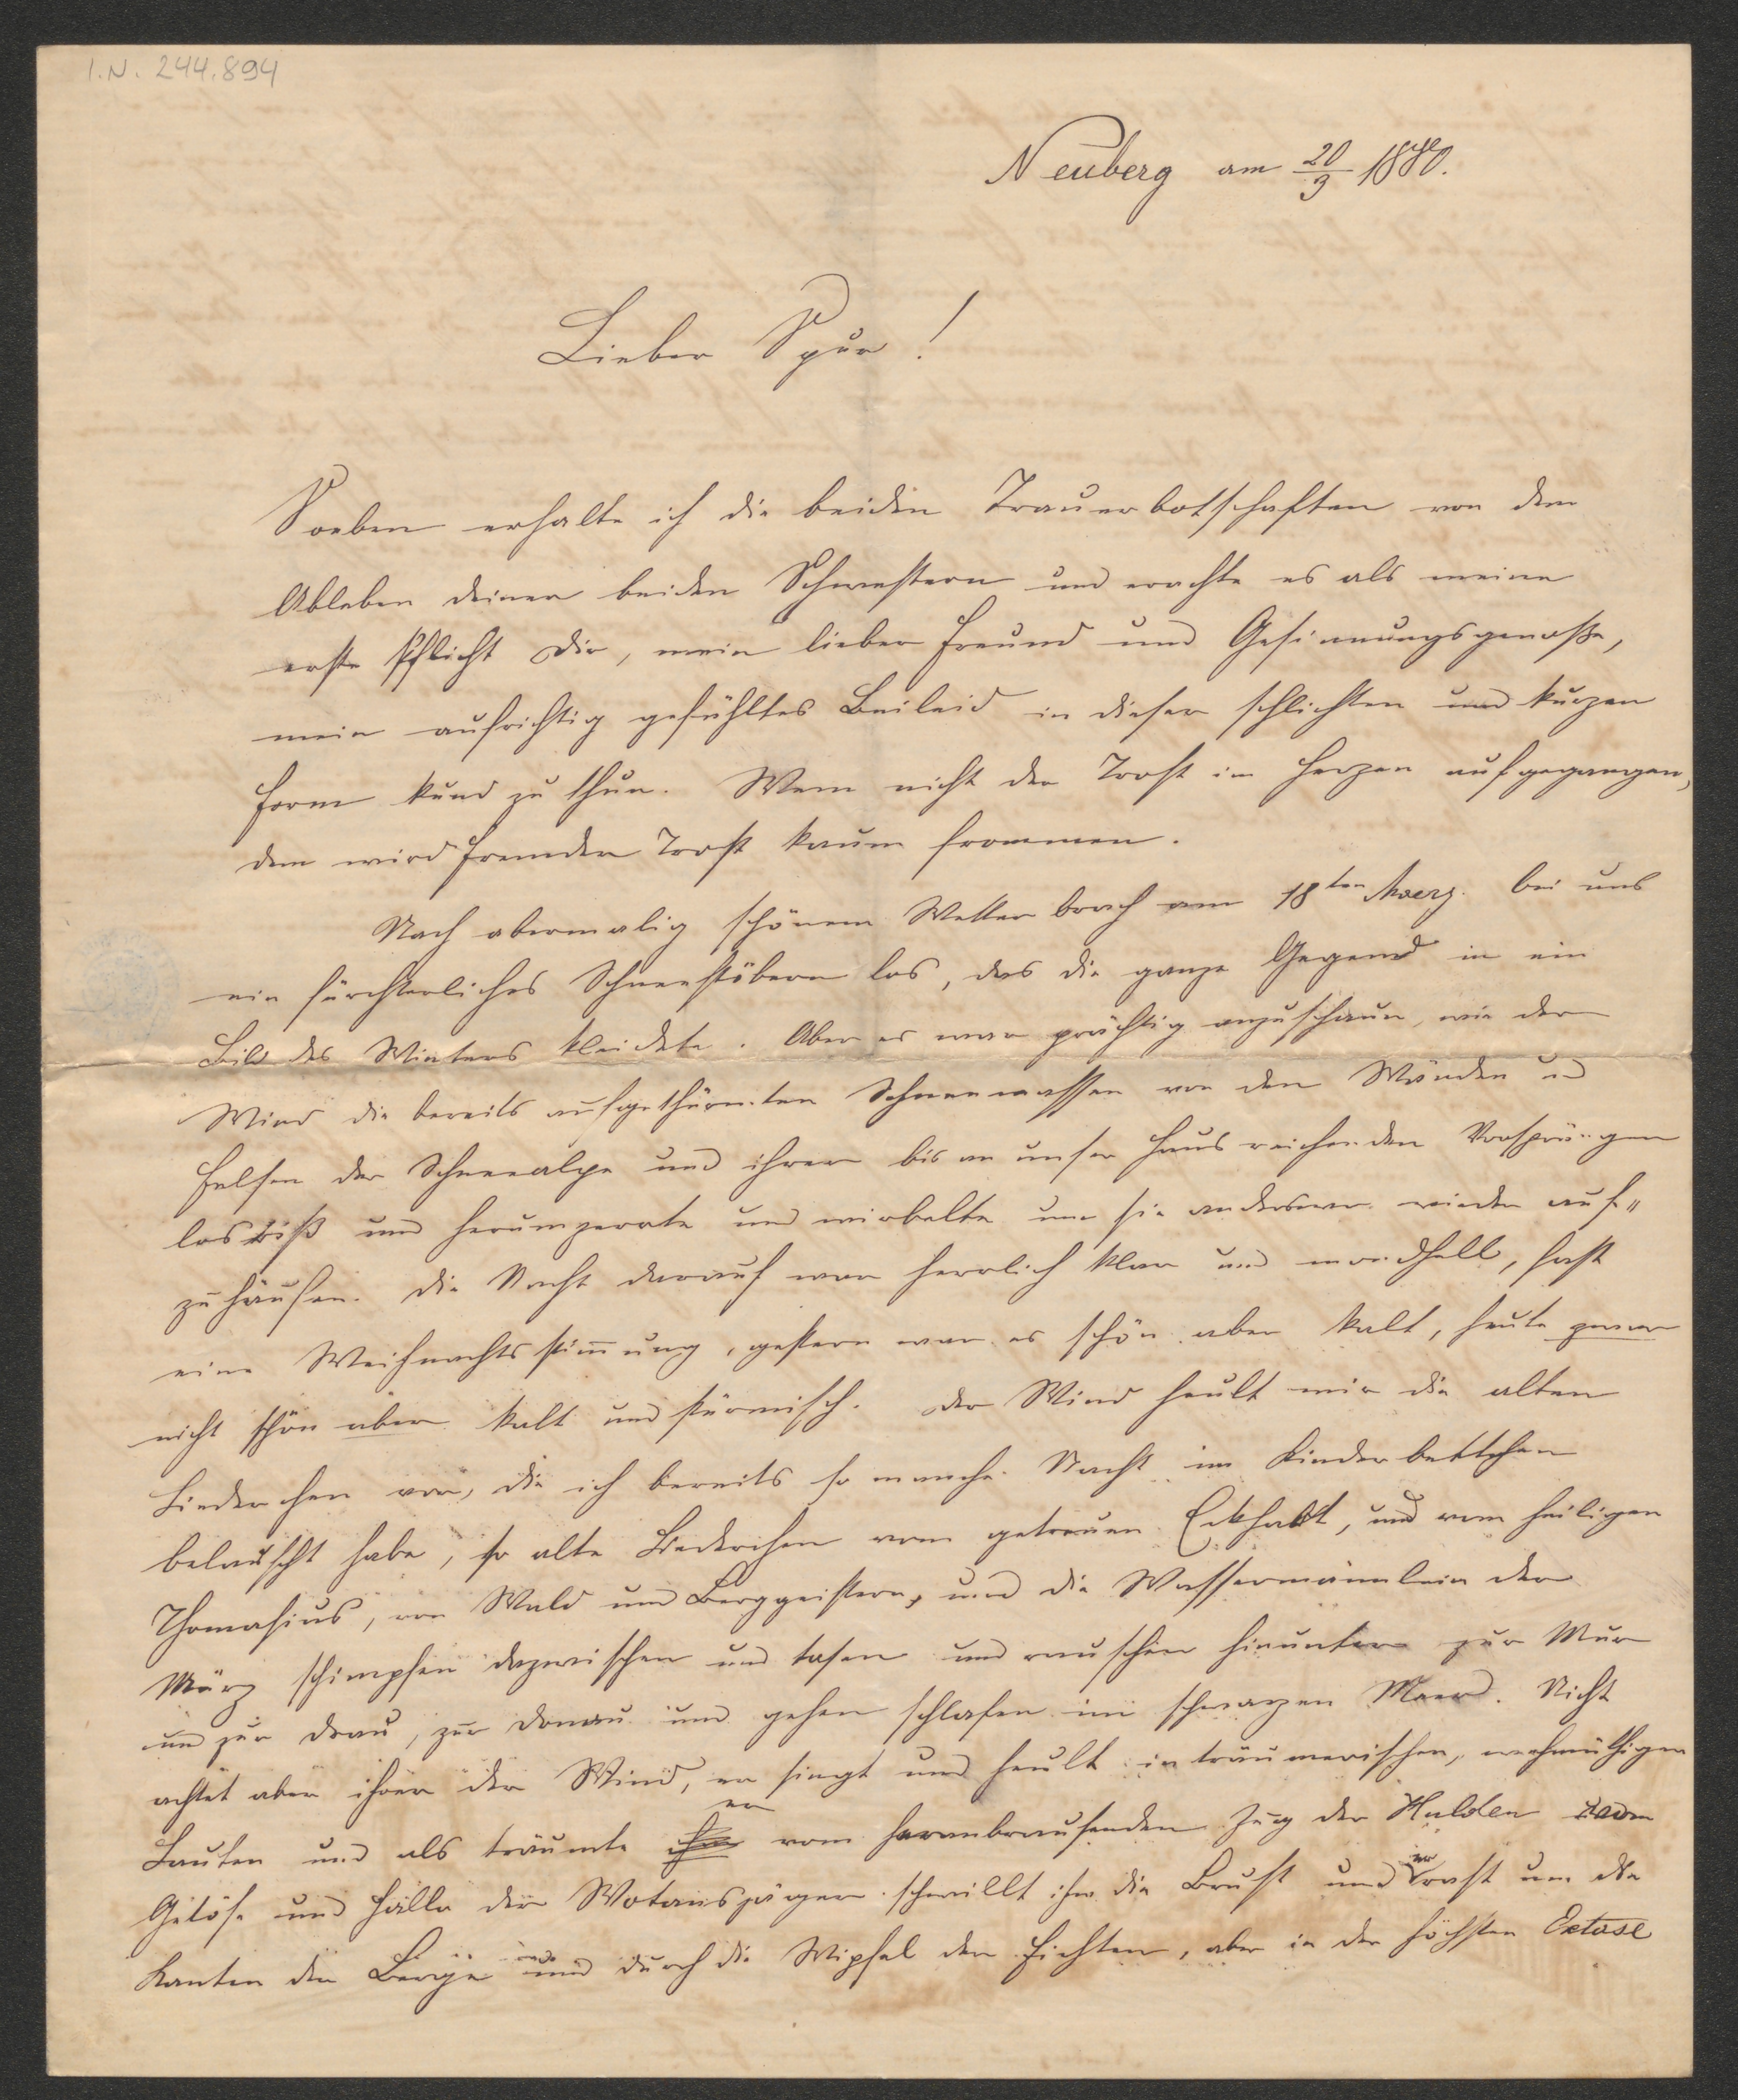 I.N. 244.894
Neuberg am 20/3 1880.
Lieber Spur!
Soeben erhalte ich die beiden Trauerbotschaften von dem
Ableben deiner beiden Schwestern und erachte es als meine
erste Pflicht Dir, mein lieber Freund und Gesinnungsgenoße,
mein aufrichtig gefühltes Beileid in dieser schlichten und kurzen
Form kund zu thun. Wem nicht der Trost im Herzen aufgegangen,
dem wird fremder Trost kaum frommen.
Nach abermalig schönem Wetter brach am 18ten Maerz. bei uns
ein fürchterliches Schneestöbern los, das die ganze Gegend in ein
Bild des Winters kleidete. Aber es war prächtig anzuschaun, wie der
Wind die bereits aufgethürmten Schneemassen von den Wänden u
Felsen der Schneealpe und ihrer bis an unser Haus reichenden Vorsprüngen
losriß und herumzerrte und wirbelte um sie anderswo wieder auf"
zuhäufen. Die Nacht darauf war herrlich klar und mondhell, fast
eine Weihnachtsstim̄ung, gestern war es schön aber kalt, heute zwar
nicht schön aber kalt und stürmisch. Der Wind heult mir die alten
Liederchen vor, die ich bereits so manche Nacht im Kinderbettchen
belauscht habe, so alte Liederchen vom getreuen Eckhardt, und vom heiligen
Thomasius, von Wald und Berggeistern, und die Wassermännlein der
Mürz schimpfen dazwischen und tosen und rauschen hinunter zur Mur
und zur Drau, zur Donau und gehen schlafen im schwarzen Meer. Nicht
achtet aber ihrer der Wind, er singt und heult in träumerischen, wehmüthigen
Lauten und als träumte er vom heranbrausenden Zug der Hulden vom
Getöse und Halle der Wotansjäger schwillt ihm die Brust und er rast um die
Kanten der Berge und durch die Wipfel der Fichten, aber in der höchsten Extase